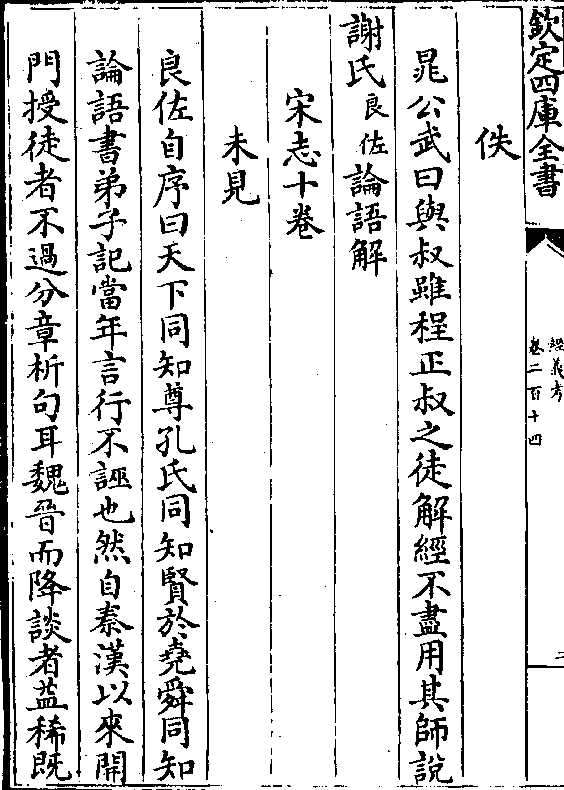 欽定四庫全書
經義考
卷二百十四
二
佚
晁公武曰與叔雖程正叔之徒解經不盡用其師說
謝氏良佐論語解
宋志十卷
未見
良佐自序曰天下同知尊孔氏同知賢於堯舜同知
論語書弟子記當年言行不誣也然自秦漢以來開
門授徒者不過分章析句耳魏晉而降談者葢稀既